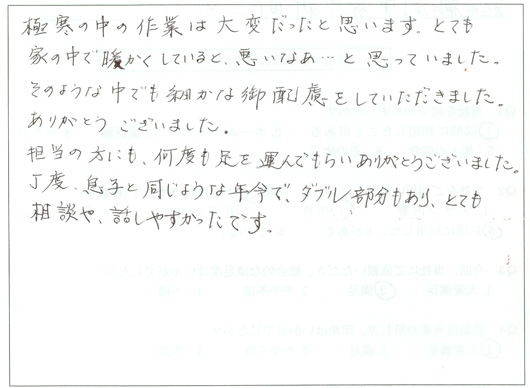 極寒の中の作業は大変だったと思います。とても
家の中で暖かくしていると、悪いなあ…と思っていました。
そのような中でも細かな御配慮をしていただきました。
ありがとうございました。
担当の方にも、何度も足を運んでもらいありがとうございました。
丁度、息子と同じような年令で、ダブル部分もあり、とても
相談や、話しやすかったです。